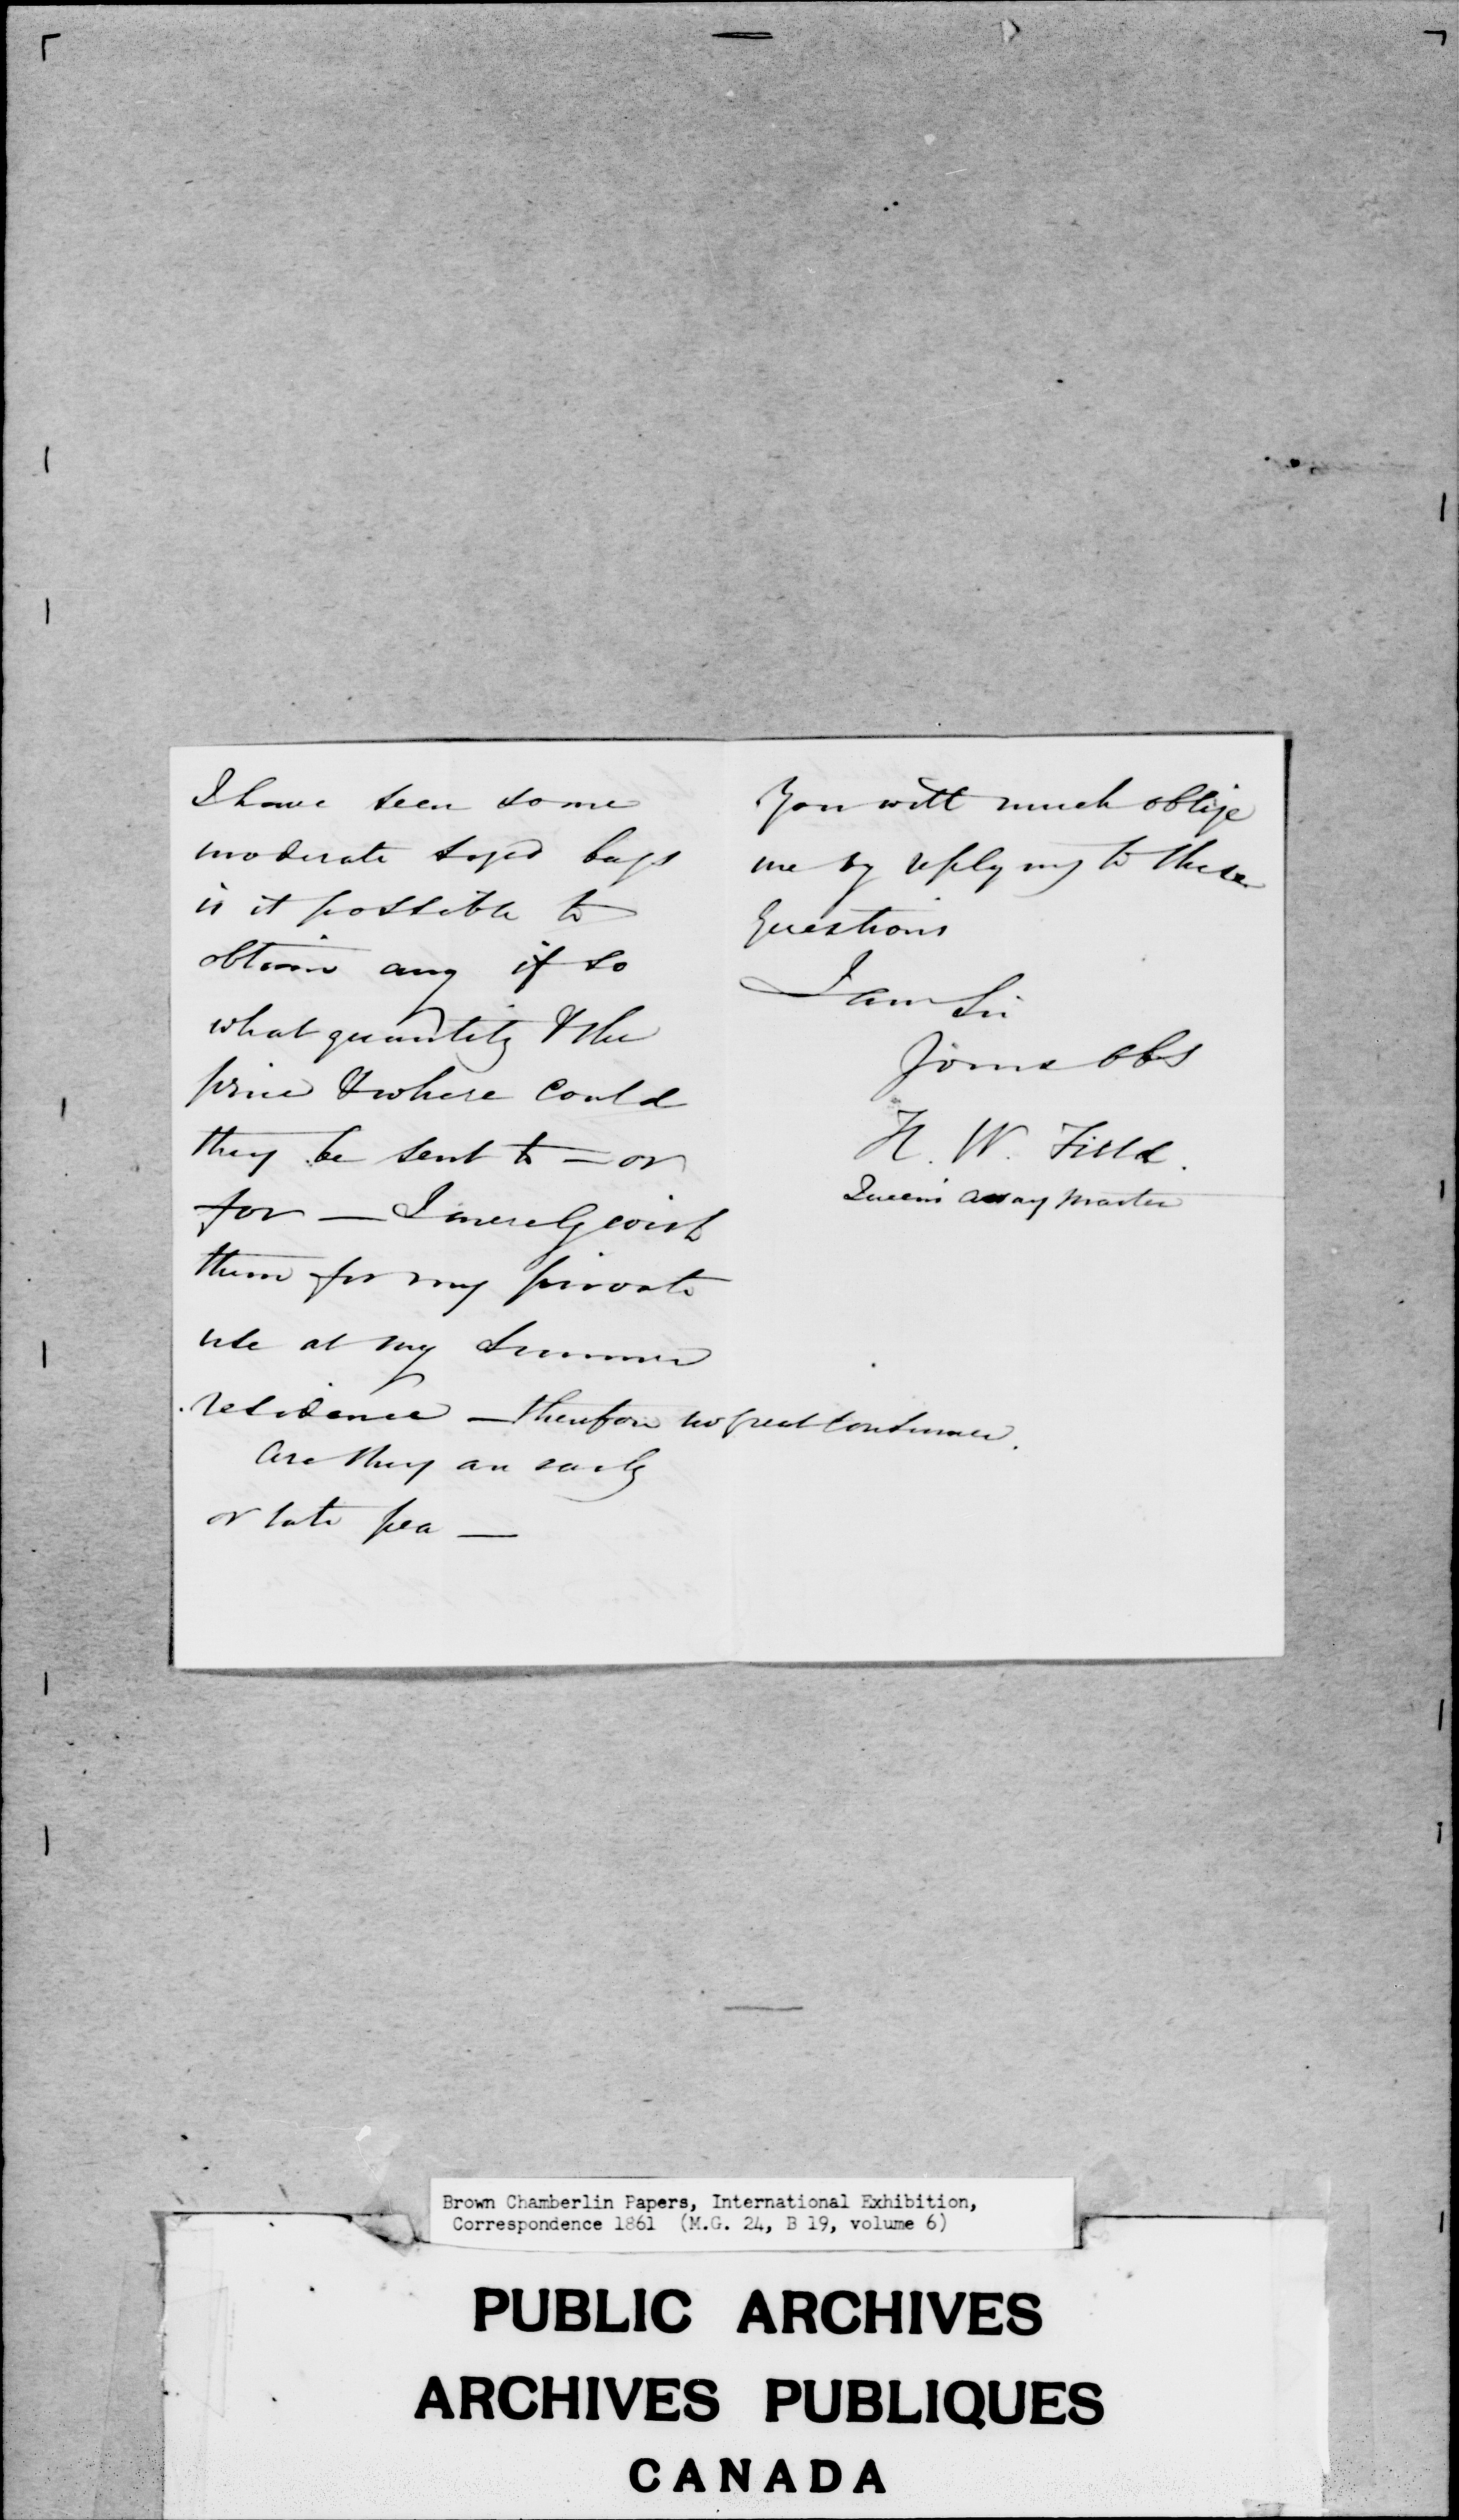 I have seen some
moderate sized bags
is it possible to
obtain any if so
what quantity & the
price & where could
they be sent to — or
for — I merely wish
them for my private
use at my Summer
residence — therefore no great consumer.
Are they an early
or late pea —
You will much oblige
me by replying to these
Questions
I am Sir
Yours obs
H. W. Field.
Queen's Assay Master
Brown Chamberlin Papers, International Exhibition,
Correspondence 1861 (M.G. 24, B 19, volume 6)
PUBLIC ARCHIVES
ARCHIVES PUBLIQUES
CANADA